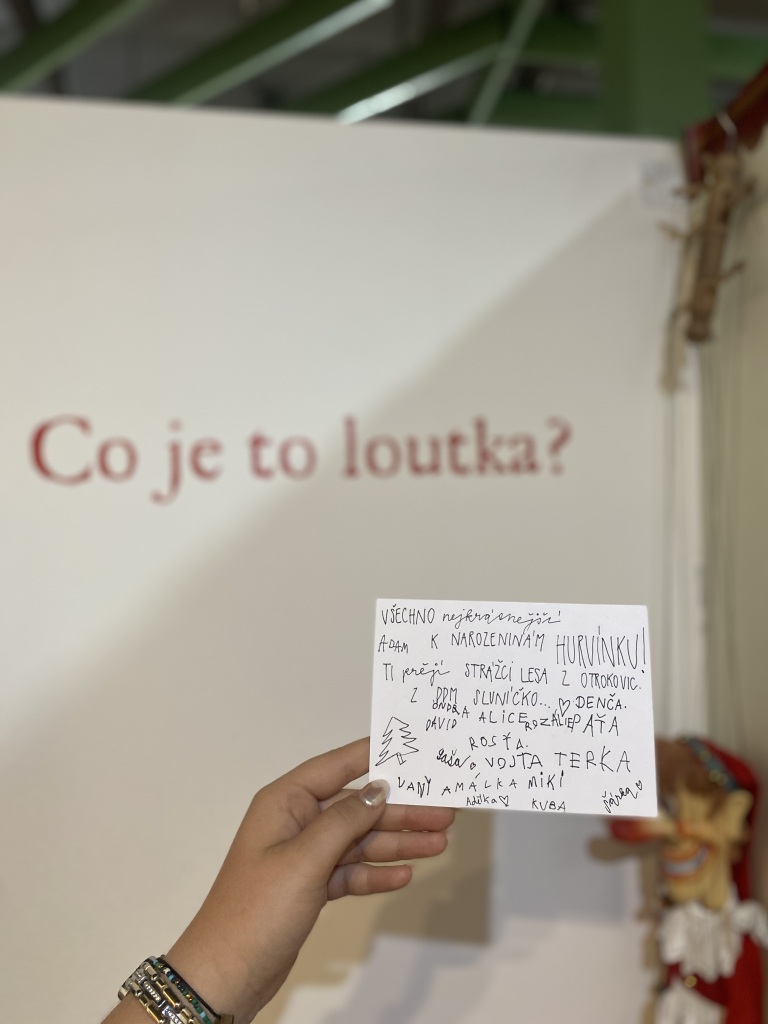 Co je to loutka?
VŠECHNO nejkrásnější
ADAM K NAROZENINÁM HURVÍNKU!
TI přejí STRÁŽCI LESA Z OTROKOVIC.
Z DDM SLUNÍČKO... DENČA.
ONDRA ALICE ROZÁLIE PÁŤA
DAVID
ROSŤA.
Saša VOJTA TERKA
VANY AMÁLKA MIKI
Adélka KUBA Šárka